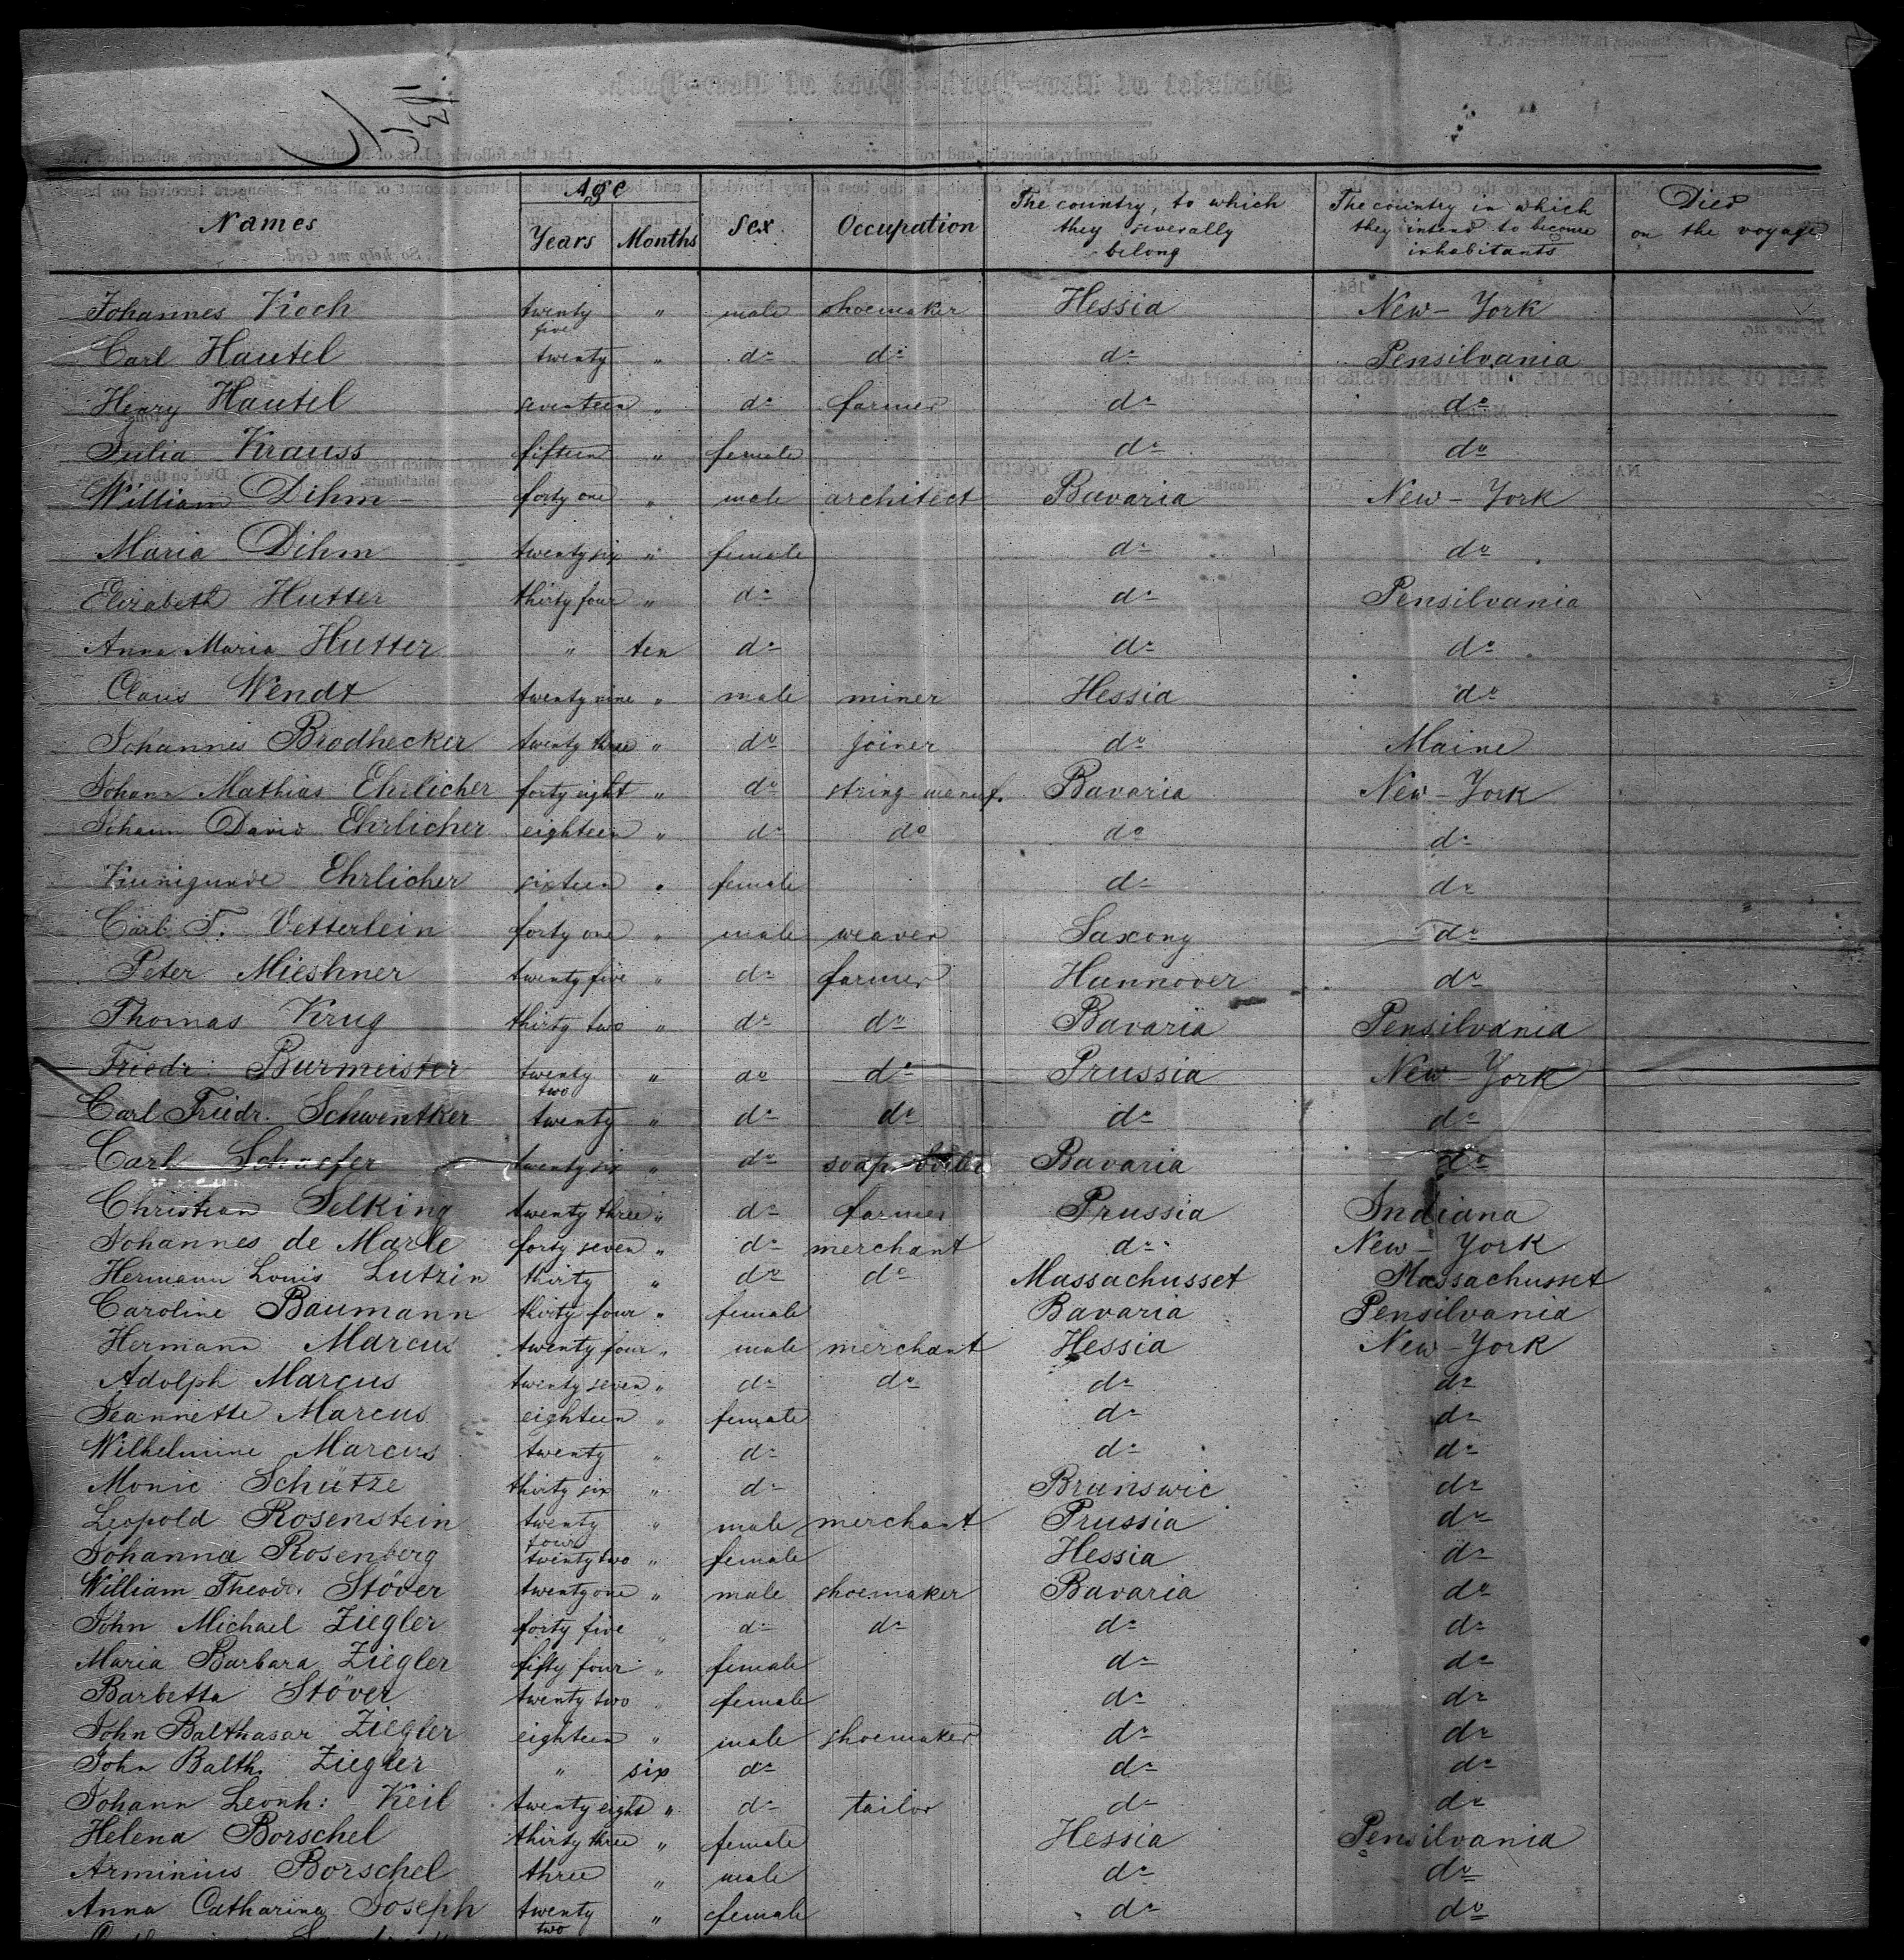 1136
Names Age Years Months Sex Occupation The country, to which they severally belong The country in which they intend to become inhabitants Died on the voyage
Johannes Koch twenty five " male shoemaker Hessia New-York
Carl Hautel twenty " do do do Pensilvania
Henry Hautel seventeen " do farmer do do
Julia Krauss fifteen " female do do
William Dihm forty one " male architect Bavaria New-York
Maria Dihm twenty six " female do do
Elizabeth Hutter thirty four " do do Pensilvania
Anna Maria Hutter " ten do do do
Claus Wendt twenty nine " male miner Hessia do
Johannes Brodhecker twenty three " do joiner do Maine
Johann Mathias Ehrlicher forty eight " do string-manuf. Bavaria New-York
Johann David Ehrlicher eighteen " do do do do
Kunigunde Ehrlicher sixteen " female do do
Carl F. Vetterlein forty one " male weaver Saxony do
Peter Mieshner twenty five " do farmer Hannover do
Thomas Krug thirty two " do do Bavaria Pensilvania
Friedr: Burmeister twenty two " do do Prussia New-York
Carl Friedr. Schwentker twenty " do do do do
Carl Schaefer twenty six " do soap-boiler Bavaria do
Christian Selking twenty three " do farmer Prussia Indiana
Johannes de Marle forty seven " do merchant do New-York
Hermann Louis Lutzin thirty " do do Massachusset Massachusset
Caroline Baumann thirty four " female Bavaria Pensilvania
Hermann Marcus twenty four " male merchant Hessia New-York
Adolph Marcus twenty seven " do do do do
Jeannette Marcus eighteen " female do do
Wilhelmine Marcus twenty " do do do
Monic Schütze thirty six " do Brunswic do
Leopold Rosenstein twenty four " male merchant Prussia do
Johanna Rosenberg twenty two " female Hessia do
William Theodr. Stöver twenty one " male shoemaker Bavaria do
John Michael Ziegler forty five " do do do do
Maria Barbara Ziegler fifty four " female do do
Barbetta Stöver twenty two " female do do
John Balthasar Ziegler eighteen " male shoemaker do do
John Balth. Ziegler " six do do do
Johann Leonh: Keil twenty eight " do tailor do do
Helena Borschel thirty three " female Hessia Pensilvania
Arminius Borschel three " male do do
Anna Catharina Joseph twenty two " female do do